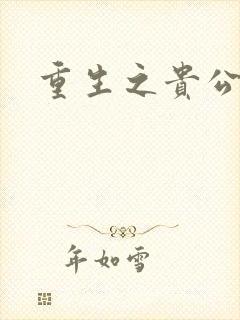 重生之貴公
年如雪